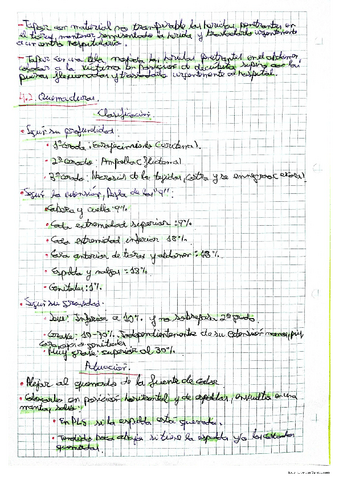 - Tapar con material no transpirable las heridas penetrantes en
el tórax, mantener semisentado la herida y trasladarlo urgentemente
a un centro hospitalario.
- Tapar con una tela mojada las heridas penetrantes en el abdomen
colocar a la víctima en posición de decúbito supino con las
piernas flexionadas y trasladarlo urgentemente al hospital.
4.2. Quemaduras.
Clasificación
• Según su profundidad:
• 1º Grado: Enrojecimiento (eritema).
• 2º Grado: Ampollas (flictena)
• 3º Grado: Necrosis de los tejidos, costra y se ennegrece (escara)
• Según la extensión, Regla de los "9".
• Cabeza y cuello 9%
• Cada extremidad superior: 9%
• Cada extremidad inferior 18%
• Cara anterior de tórax y abdomen: 18%
• Espalda y nalgas: 18%
• Genitales: 1%
• Según su gravedad:
• Leve: Inferior a 10% y no sobrepasa 2º grado
• Grave: 10-30% Independientemente de su extensión manos, pies,
cara, ojos o genitales
• Muy grave: superior al 30%.
Actuación.
• Alejar al quemado de la fuente de calor
• Colocarlo en posición horizontal y de espaldas, envuelto en una
manta, salvo:
• En PLS si la espalda está quemada.
• Tendido boca abajo si tiene la espalda y/o los costados
quemados.